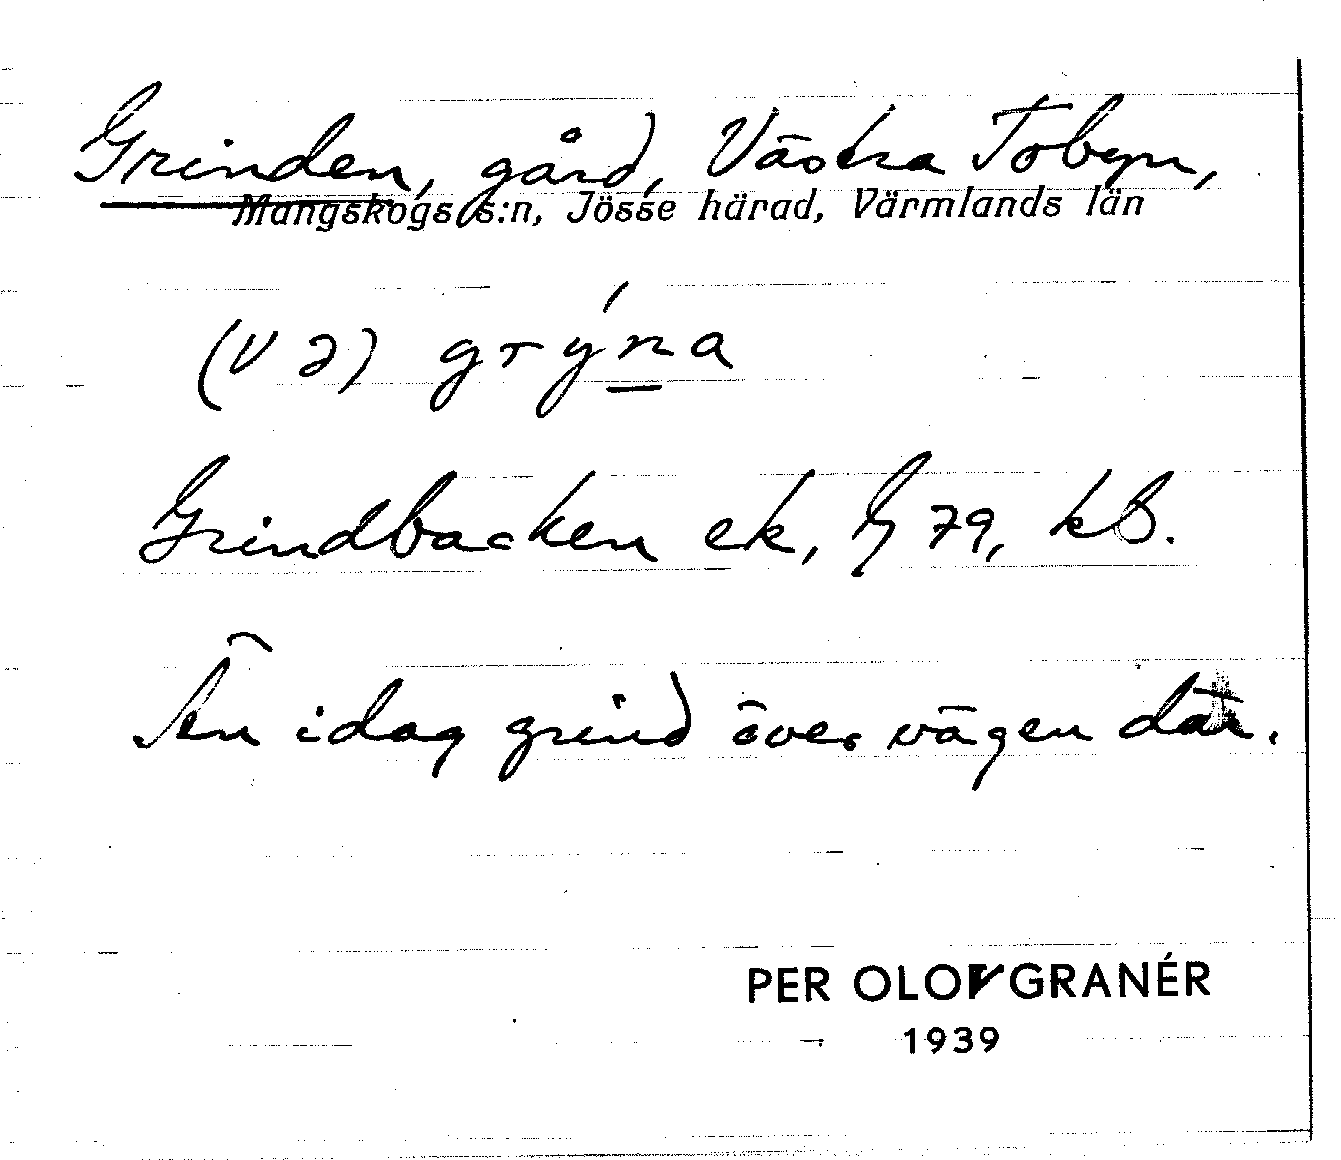 Grinden, gård, Västra Tobyn,
Mangskogs s:n, Jösse härad, Värmlands län
(V ə) grýna
Grindbacken ek, 79, kB.
Än idag grind över vägen där.
PER OLOV GRANÉR
1939